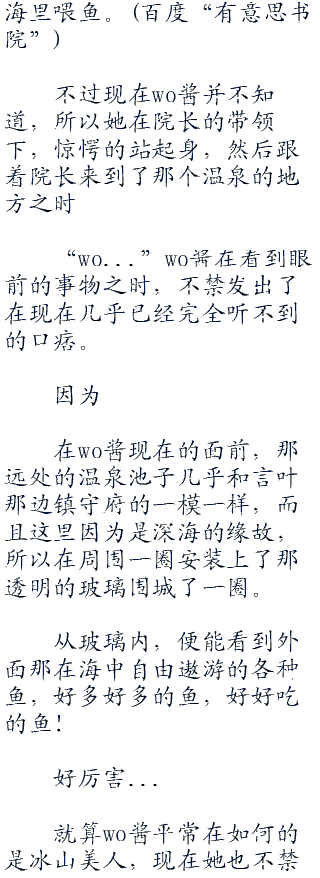 海里喂鱼。(百度“有意思书
院”)
不过现在wo酱并不知
道，所以她在院长的带领
下，惊愕的站起身，然后跟
着院长来到了那个温泉的地
方之时
“wo...”wo酱在看到眼
前的事物之时，不禁发出了
在现在几乎已经完全听不到
的口痞。
因为
在wo酱现在的面前，那
远处的温泉池子几乎和言叶
那边镇守府的一模一样，而
且这里因为是深海的缘故，
所以在周围一圈安装上了那
透明的玻璃围城了一圈。
从玻璃内，便能看到外
面那在海中自由遨游的各种
鱼，好多好多的鱼，好好吃
的鱼!
好厉害...
就算wo酱平常在如何的
是冰山美人，现在她也不禁